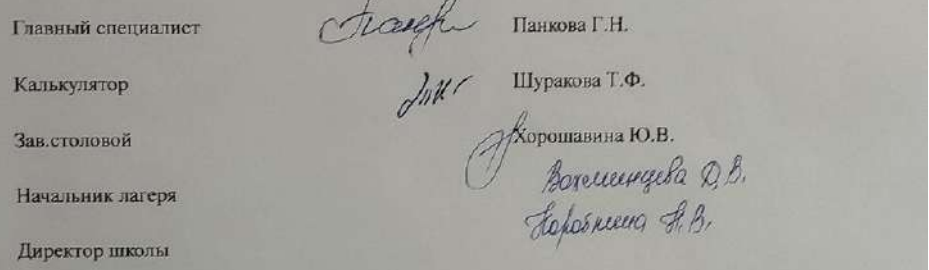 Главный специалист Панкова Г.Н.
Калькулятор Шуракова Т.Ф.
Зав.столовой Хорошавина Ю.В.
Начальник лагеря Вохминцева Д.В.
Директор школы Н.В.